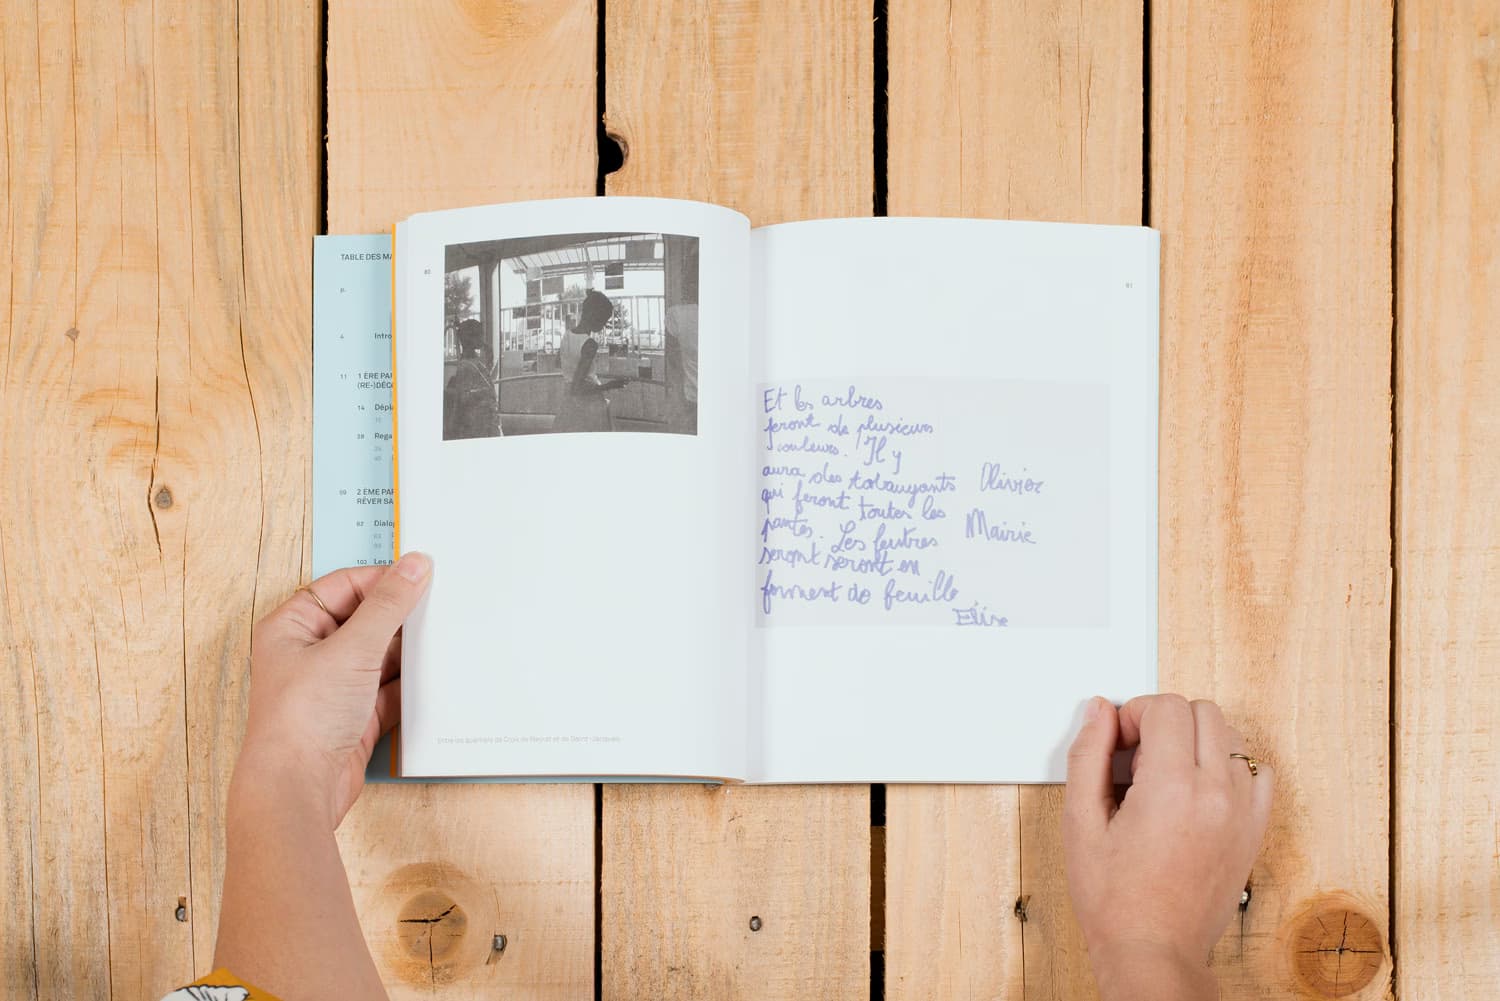 TABLE DES MA
P.
4 Intro
11 1 ERE PAR
(RE-)DÉCO
14 Dépla
28 Rega
59 2 EME PAR
RÊVER SA
62 Dialog
103 Les n
Entre les quartiers de Croix de Neyrat et de Saint-Jacques.
81
Et les arbres
feront de plusieurs
couleurs. Il y
aura des tobauyants
qui feront toutes les
pantes. Les feutres
seront seront en
forment de feuille
Olivier
Mairie
Elise